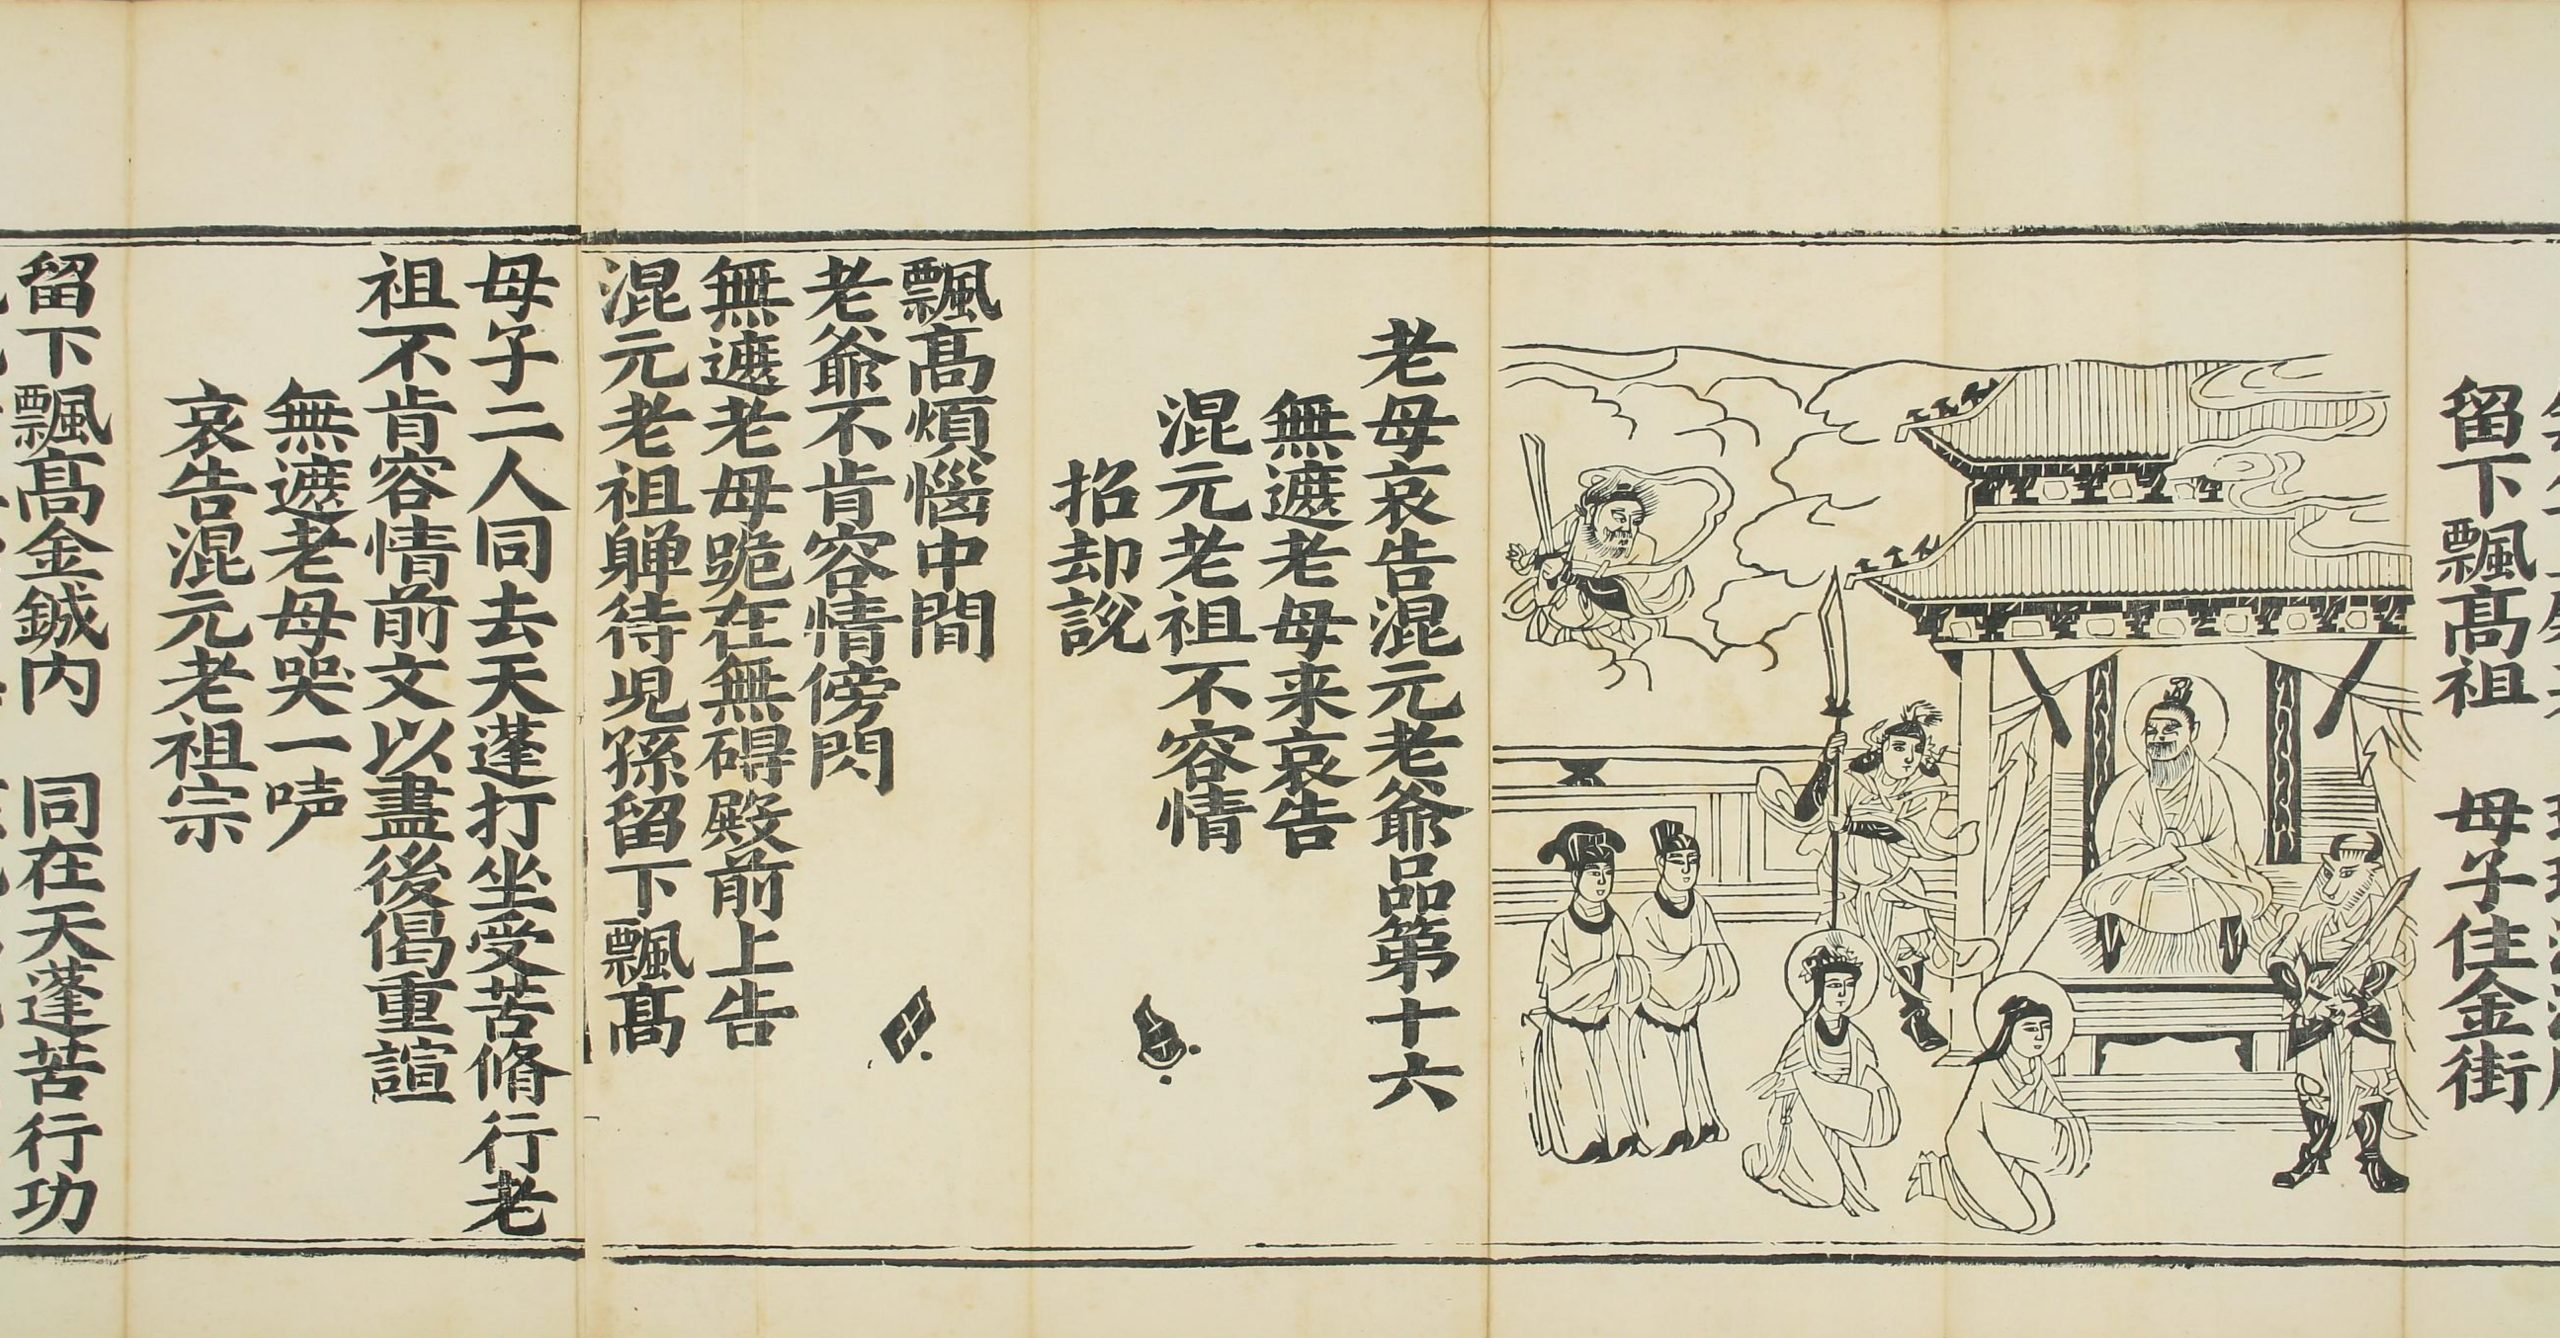 留下飄髙祖　母子住金街
老母哀告混元老爺品第十六
無遮老母来哀告
混元老祖不容情
招却説
飄髙煩惱中間
老爺不肯容情傍閃
無遮老母跪在無碍殿前上告
混元老祖躭待児孫留下飄髙
母子二人同去天蓬打坐受苦脩行老
祖不肯容情前文以盡後偈重諠
無遮老母哭一声
哀告混元老祖宗
留下飄髙金鋮内　同在天蓬苦行功